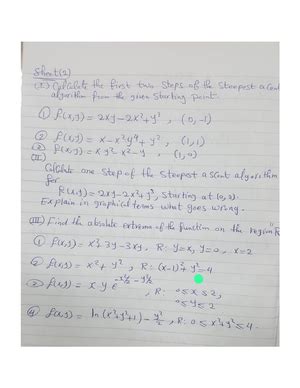 Sheet(2)
(I) Calculate the first two steps of the steepest ascent
algorithm from the given starting point.
① f(x,y) = 2xy - 2x² + y² , (0,-1)
② f(x,y) = x - x²y⁴ + y² , (1,1)
③ f(x,y) = x y² x² - y , (1,0)
(II)
Calculate one step of the steepest ascent algorithm
for
f(x,y) = 2xy - 2x² + y³, starting at (0,0).
Explain in graphical terms what goes wrong.
(III) Find the absolute extrema of the function on the region R
① f(x,y) = x² 3y - 3xy, R: y=x, y=0, x=2
② f(x,y) = x² + y² , R: (x-1)² + y² = 4
③ f(x,y) = x y e^-x²/2 - y²/2 , R: 0≤x≤2,
0≤y≤2
④ f(x,y) = ln(x²+y²+1) - y²/2 , R: 0≤x²+y²≤4.